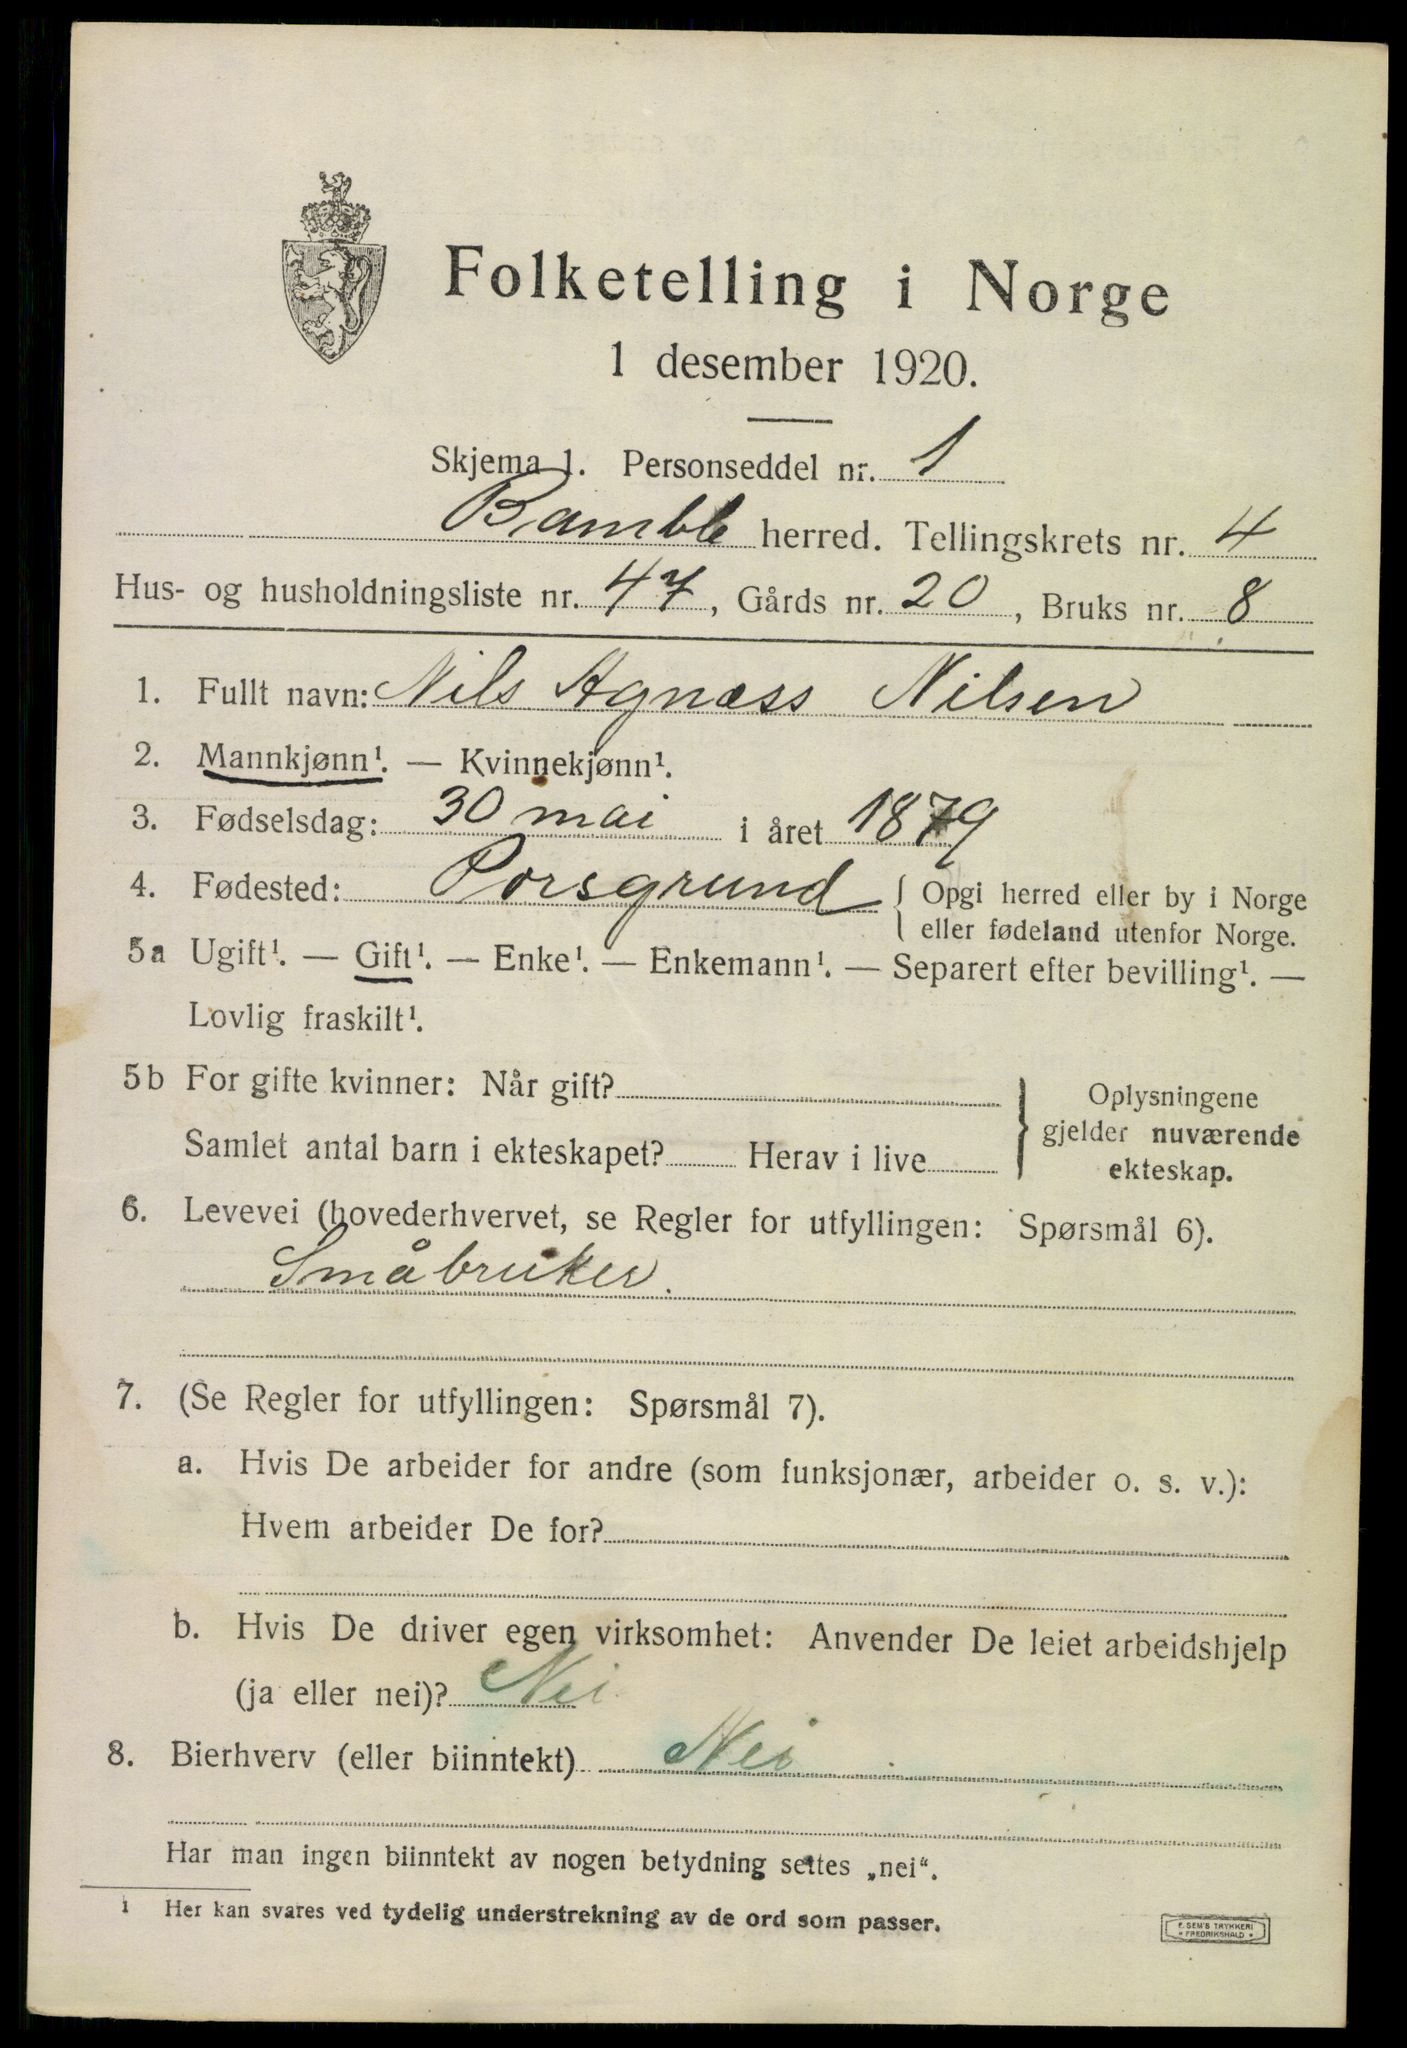 Folketelling i Norge
1 desember 1920.
Skjema 1. Personseddel nr. 1
Bamble herred. Tellingskrets nr. 4
Hus- og husholdningsliste nr. 47, Gårds nr. 20, Bruks nr. 8
1. Fullt navn: Nils Agnæss Nilsen
2. Mannkjønn¹. — Kvinnekjønn¹.
3. Fødselsdag: 30 mai i året 1879
4. Fødested: Porsgrund { Opgi herred eller by i Norge
eller fødeland utenfor Norge.
5a Ugift¹. — Gift¹. — Enke¹. — Enkemann¹. — Separert efter bevilling¹. —
Lovlig fraskilt¹.
5b For gifte kvinner: Når gift?
Samlet antal barn i ekteskapet? Herav i live
} Oplysningene
gjelder nuværende
ekteskap.
6. Levevei (hovederhvervet, se Regler for utfyllingen: Spørsmål 6).
Småbruker.
7. (Se Regler for utfyllingen: Spørsmål 7).
a. Hvis De arbeider for andre (som funksjonær, arbeider o. s. v.):
Hvem arbeider De for?
b. Hvis De driver egen virksomhet: Anvender De leiet arbeidshjelp
(ja eller nei)? Nei
8. Bierhverv (eller biinntekt) Nei
Har man ingen biinntekt av nogen betydning settes „nei“.
¹ Her kan svares ved tydelig understrekning av de ord som passer.
F. SEM'S TRYKKERI
* FREDRIKSHALD *